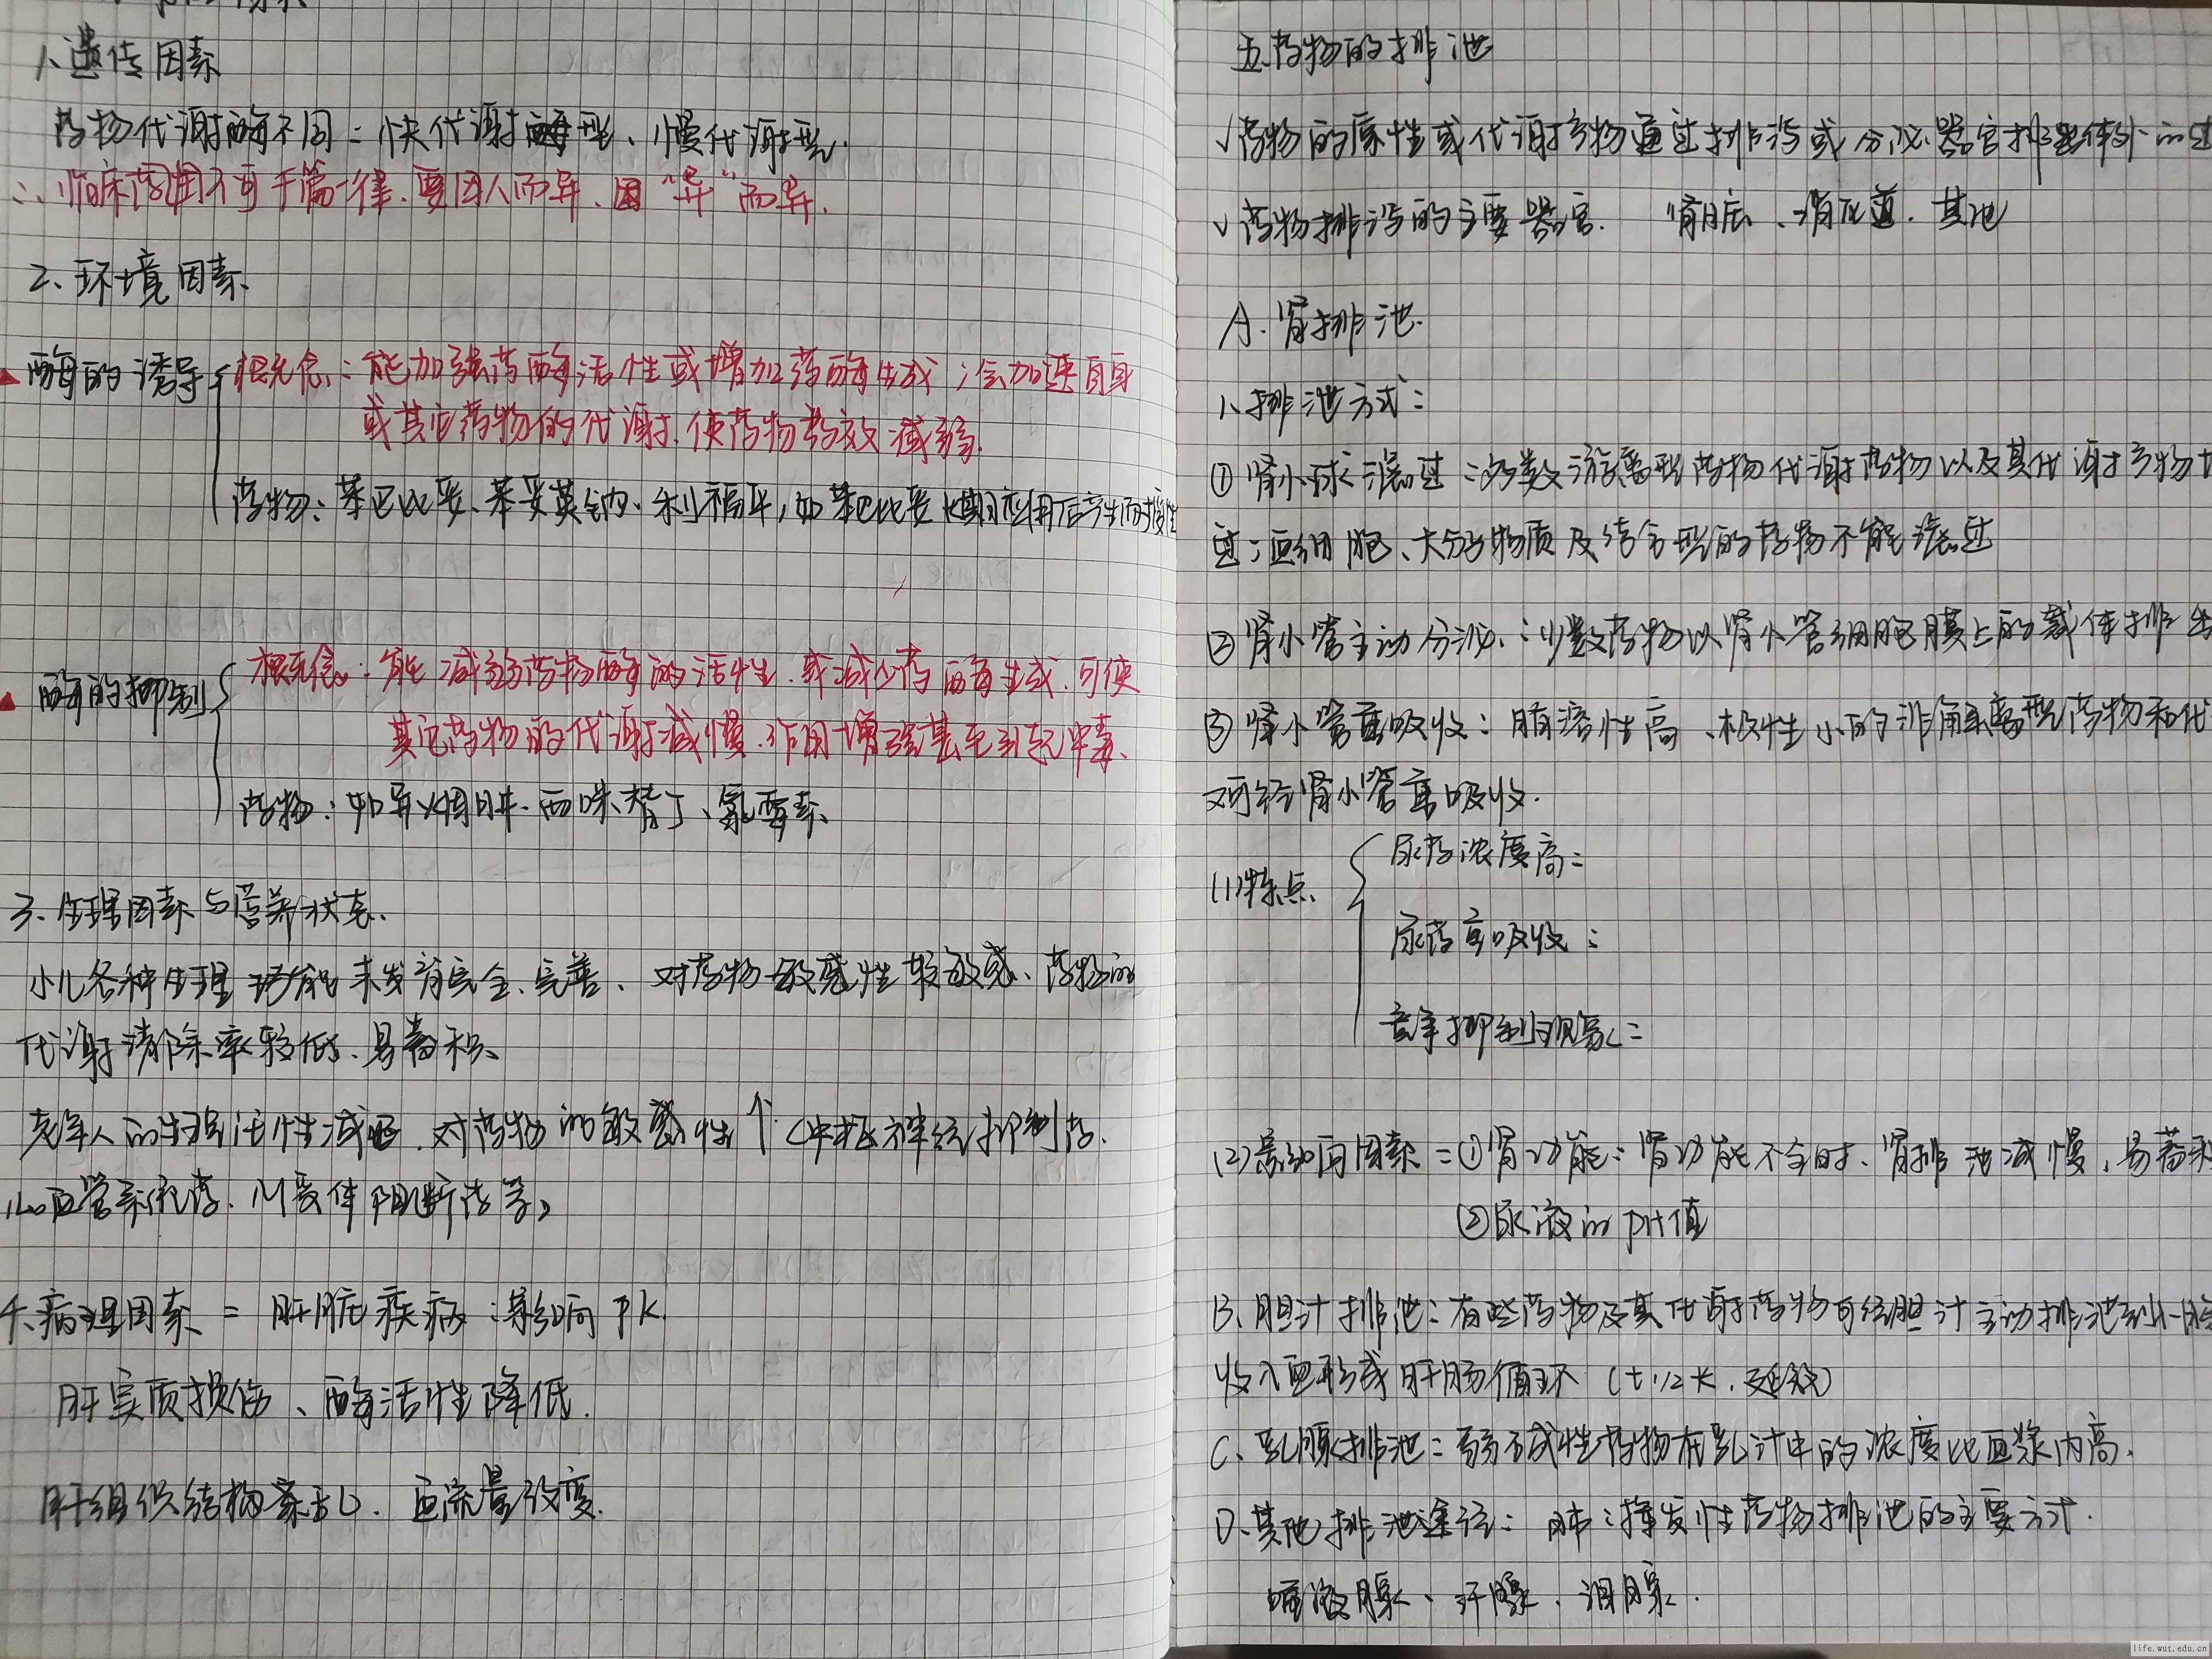 1、遗传因素
药物代谢酶不同：快代谢型、慢代谢型.
∴临床药用不可千篇一律.要因人而异、因“异”而异.
2、环境因素
酶的诱导
概念：能加强药酶活性或增加药酶生成；会加速自身
或其它药物的代谢，使药物药效减弱.
药物：苯巴比妥、苯妥英钠、利福平，如苯巴比妥长期应用后产生耐受性
酶的抑制
概念：能减弱药物酶的活性.或减少药酶生成.可使
其它药物的代谢减慢.作用增强甚至引起中毒.
药物：如异烟肼.西咪替丁、氯霉素
3、生理因素与营养状态.
小儿各种生理功能未发育完全、完善、对药物敏感性较敏感、药物的
代谢清除率较低、易蓄积、
老年人的生理活性减退.对药物的敏感性↑（中枢神经抑制药.
心血管系统药.M受体阻断药等）
4、病理因素：肝脏疾病：影响PK.
肝实质损伤、酶活性降低.
肝组织结构紊乱.血流量改变.
五.药物的排泄
√药物的原性或代谢产物通过排泻或分泌器官排出体外的过
√药物排泻的主要器官.肾脏、消化道.其他
A.肾排泄.
1、排泄方式：
①肾小球滤过：多数游离型药物代谢药物以及其代谢产物可
过；血细胞、大分子物质及结合型的药物不能滤过
②肾小管主动分泌：少数药物以肾小管细胞膜上的载体排出
③肾小管重吸收：脂溶性高、极性小的非解离型药物和代
又可经肾小管重吸收.
(1)特点
尿药浓度高：
尿药重吸收：
竞争抑制现象：
(2)影响因素：①肾功能：肾功能不全时、肾排泄减慢，易蓄积
②尿液的PH值
B、胆汁排泄：有些药物及其代谢药物可经胆汁主动排泄到小肠
收入血形成肝肠循环（t1/2长.延效）
C、乳腺排泄：弱碱性药物在乳汁中的浓度比血浆内高.
D、其他排泄途径：肺：挥发性药物排泄的主要方式.
唾液腺、汗腺、泪腺.
life.wut.edu.cn